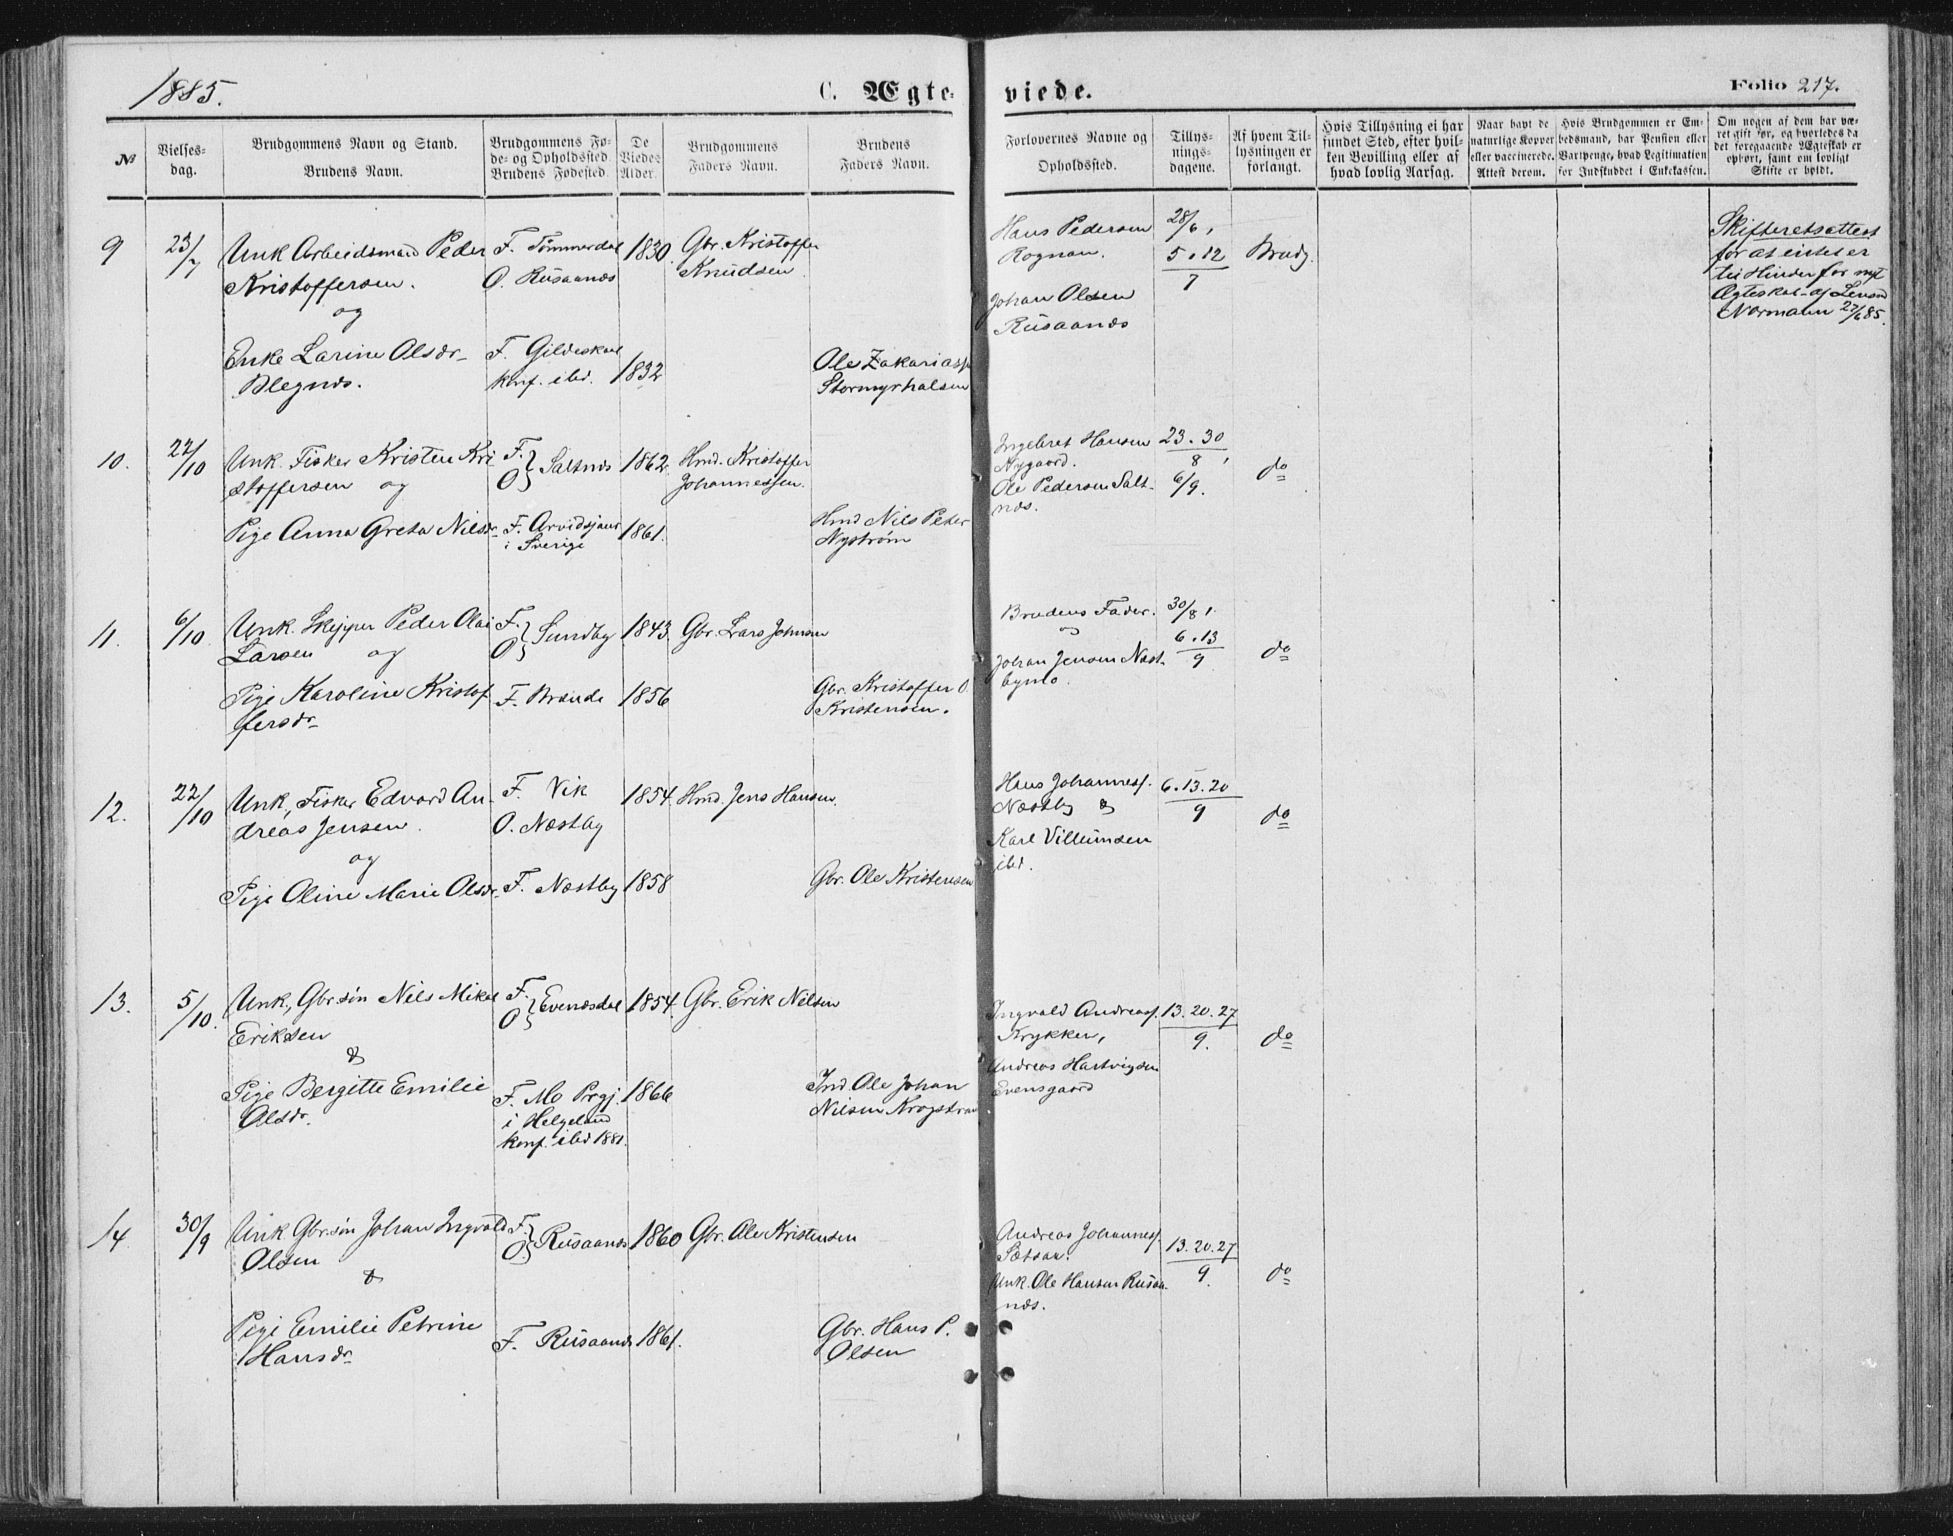 1885.
C. Ægteviede.
Folio 217.
№
Vielsesdag.
Brudgommens Navn og Stand.
Brudens Navn.
Brudgommens Føde- og Opholdssted.
Brudens Fødested.
De Viedes Alder.
Brudgommens Faders Navn.
Brudens Faders Navn.
Forlovernes Navne og Opholdssted.
Tillysningsdagene.
Af hvem Tillysningen er forlangt.
Hvis Tillysning ei har fundet Sted, efter hvilken Bevilling eller af hvad lovlig Aarsag.
Naar havt de naturlige Kopper eller vaccinerede. Attest derom.
Hvis Brudgommen er Embedsmand, har Pension eller Vartpenge, hvad Legitimation for Indskuddet i Enkekassen.
Om nogen af dem har været gift før, og hvorledes da det foregaaende Ægteskab er ophørt, samt om lovligt Skifte er holdt.
9
23/7
Unk Arbeidsmand Peder
Kristoffersen.
og
Enke Larine Olsdr
F. Tømmerdal
O. Rusaanæs
F. Gildeskaal
konf. ibd.
1830.
1832
Gbr. Kristoffer
Knudsen
Ole Zakariass
Stormyrhalsen
Hans Pedersen
Rognan.
Johan Olsen
Rusaanæs
28/6,
5.12
7
Brudg.
Skifteretsattest
for at intet er
til Hinder for nyt
Ægteskab af
Normann 22/6 85.
10.
22/10
Unk. Fisker Kristen Kri
stoffersen og
Pige Anna Greta Nilsdr
F.
O } Saltnæs
F. Arvidsjaur
i Sverige
1862
1861.
Hmd. Kristoffer
Johannessen.
Hmd Nils Peter
Nystrøm
Ingebret Hansen
Nygaard.
Ole Pedersen Salt-
næs.
23.30
8,
6/9.
do
11.
6/10
Unk. Skipper Peder Olai
Larsen og
Pige Karoline Kristof
fersdr
F.
O } Sundby
F. Brænde
1843.
1856
Gbr. Lars Johnsen
Gbr. Kristoffer O.
Kristensen.
Brudens Fader.
og
Johan Jensen Næst-
bymo.
30/8,
6.13
9
do
12.
22/10
Unk, Fisker Edvard An-
dreas Jensen.
og
Pige Oline Marie Olsdr.
F. Vik
O. Næstby
F. Næstby
1854.
1858
Hmd. Jens Hansen.
Gbr. Ole Kristensen
Hans Johanness.
Næstby &
Karl Villumsen
ibd.
6.13.20
9
do
13.
5/10.
Unk, Gbr.søn Nils Mikal
Eriksen
&
Pige Bergitte Emilie
Olsdr.
F.
O } Evenesdal
F. Mo Prgj.
i Helgeland
konf. ibd 1881.
1854
1866
Gbr. Erik Nilsen
Ind. Ole Johan
Nilsen
Ingvald Andreass.
Krykken,
Andreas Hartvigsen
Evensgaard
13.20.27
9.
do
14
30/9
Unk Gbr.søn Johan Ingvald
Olsen
&
Pige Emilie Petrine
Hansdr
F.
O } Rusaanæs
F. Rusaanæs
1860
1861.
Gbr. Ole Kristensen
Gbr. Hans P.
Olsen
Andreas Johanness.
Unk. Ole Hansen Rusaa-
næs.
13.20.27
9.
do